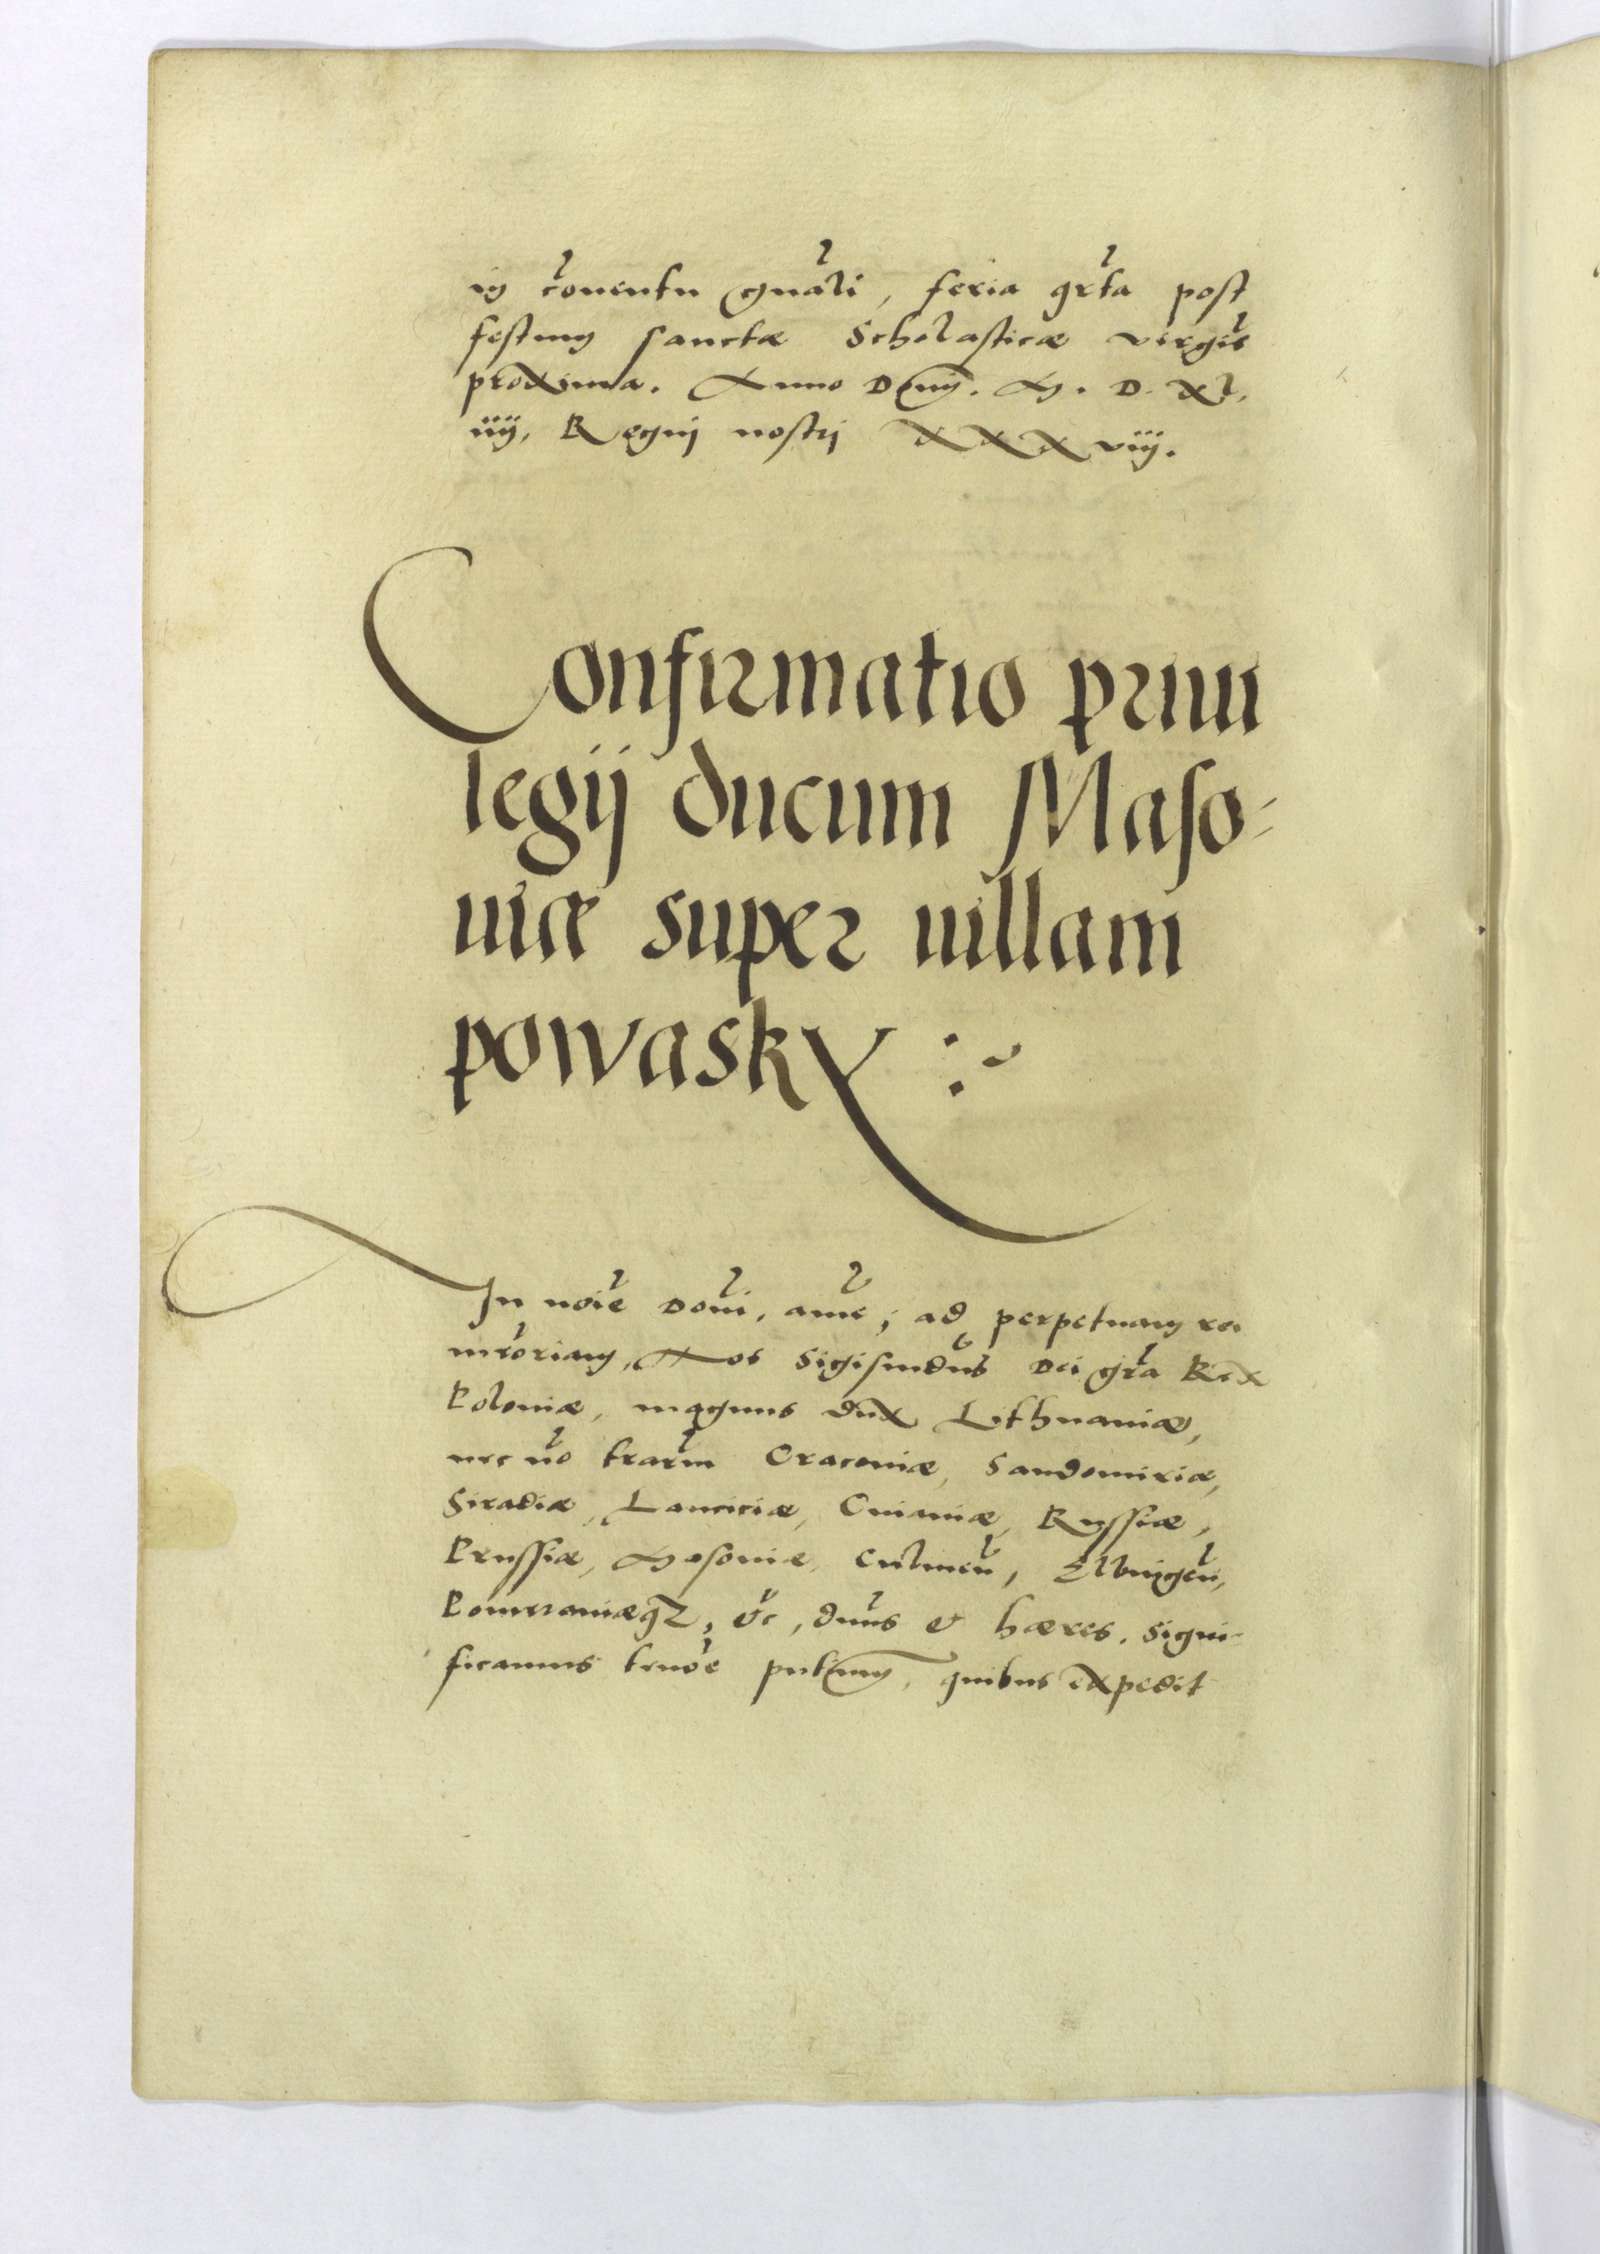 in conentu gnali, feria qrta post
festum sanctæ Scholasticæ virgis
proxima. Anno Dnij. M. D. XL.
iiij, Regnij nostrj XXXviij.
Confirmatio priui
legij ducum Maso-
uiæ super uillam
powasky :~
In noie Domi. ame; ad perpetuam rei
mroriam, Nos Sigismdus Dei gra Rex
Poloniæ, magnus dux Lithuaniæ,
nec no trarm Cracouiæ, Sandomiriæ,
Siradiæ, Lanciciæ, Cuiauiæ, Russiæ,
Prussiæ, Masouiæ, Culmen, Elbingen,
Pomeraniæqz, &c, dnus & hæres. Signi-
ficamus tenoe pntium, quibus expedit